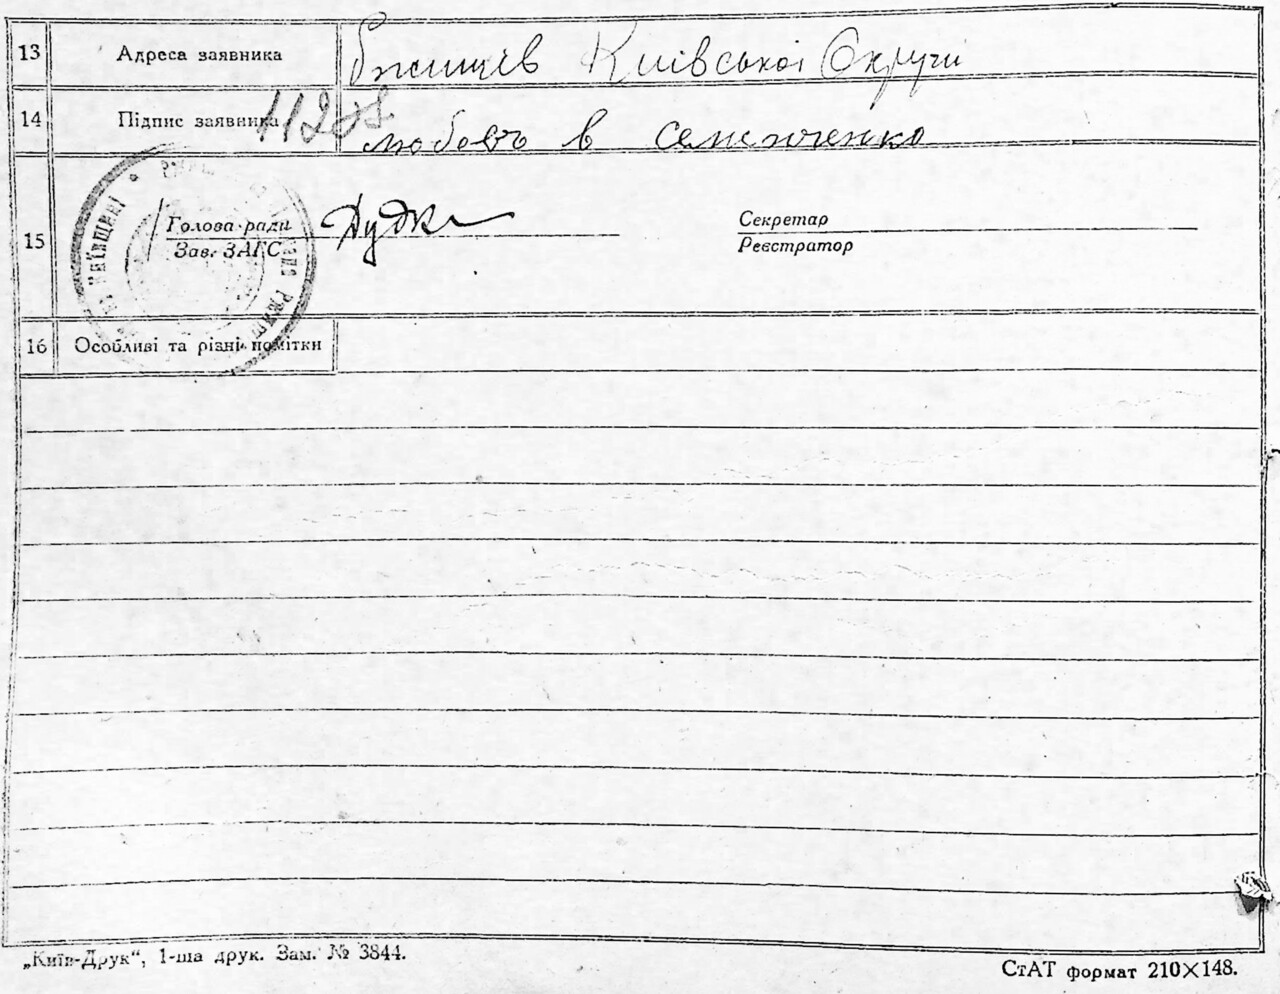 13 Адреса заявника Ржищев Київської Округи
14 Підпис заявника любовъ в семенченко
15 Голова ради Дудка Секретар
Зав. ЗАГС Реєстратор
16 Особливі та різні помітки
„Київ-Друк“, 1-ша друк. Зам. № 3844.
СтАТ формат 210×148.